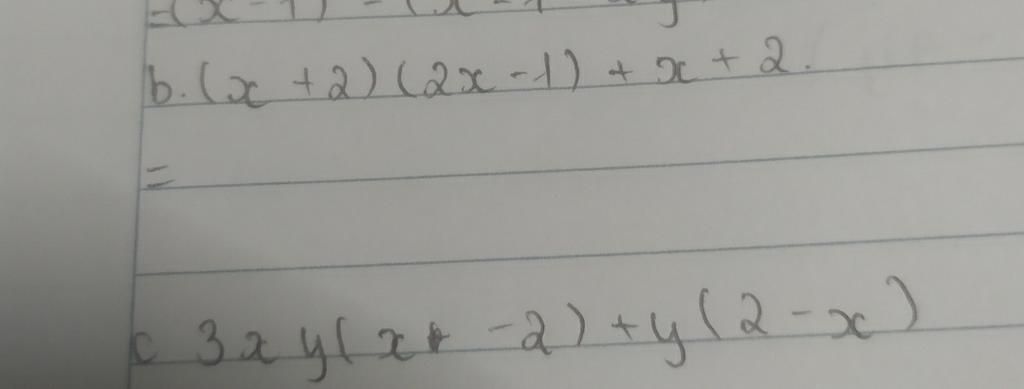 b. (x + 2) (2x - 1) + x + 2.
=
c 3xy(x - 2) + y(2 - x)